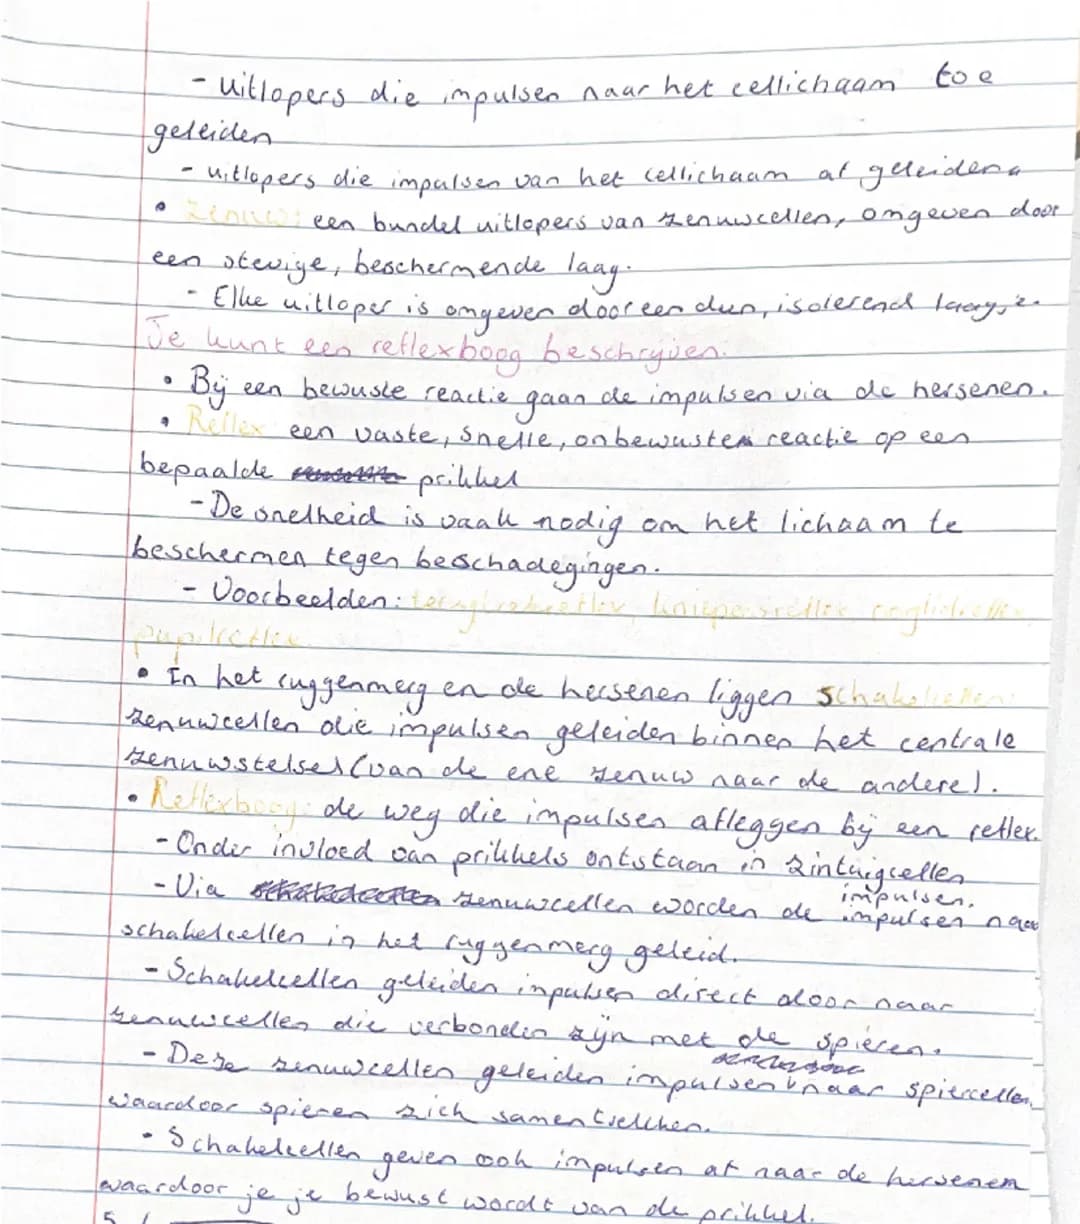 - Uitlopers die impulsen naar het cellichaam toe
geleiden
- uitlopers die impulsen van het cellichaam af geleiden
• Zenuw: een bundel uitlopers van zenuwcellen, omgeven door
een stevige, beschermende laag.
- Elke uitloper is omgeven door een dun, isolerend laagje.
Je kunt een reflexboog beschrijven.
• Bij een bewuste reactie gaan de impulsen via de hersenen.
• Reflex een vaste, snelle, onbewuste reactie op een
bepaalde prikkel
- De snelheid is vaak nodig om het lichaam te
beschermen tegen beschadegingen.
- Voorbeelden: terugtrekreflex, kniepeesreflex, ooglidreflex
pupilreflex
• In het ruggenmerg en de hersenen liggen schakelcellen:
zenuwcellen die impulsen geleiden binnen het centrale
zenuwstelsel (van de ene zenuw naar de andere).
• Reflexboog: de weg die impulsen afleggen bij een reflex.
- Onder invloed van prikkels ontstaan in zintuigcellen
impulsen.
- Via zenuwcellen worden de impulsen naar
schakelcellen in het ruggenmerg geleid.
- Schakelcellen geleiden impulsen direct door naar
zenuwcellen die verbonden zijn met de spieren.
- Deze zenuwcellen geleiden impulsen naar spiercellen,
waardoor spieren zich samentrekken.
- Schakelcellen geven ook impulsen af naar de hersenen
waardoor je je bewust wordt van de prikkel.